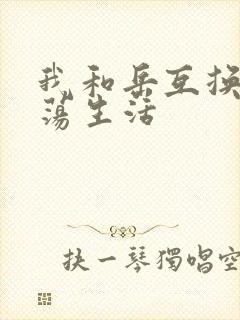 我和岳互换
荡生活
抉一琴獨唱空